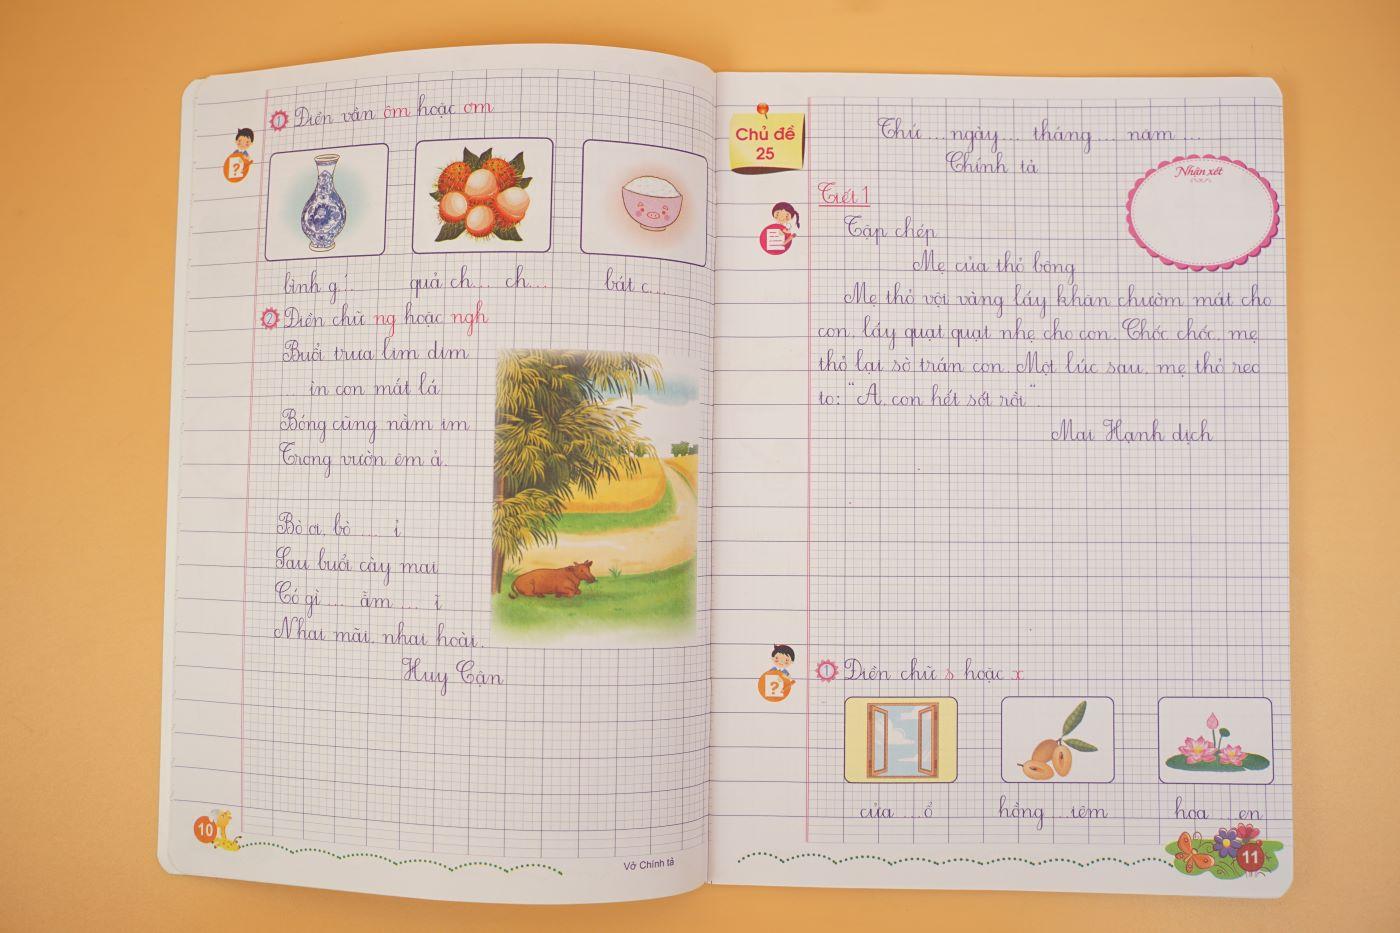 1 Điền vần ôm hoặc ơm
bình g...
quả ch... ch...
bát c...
2 Điền chữ ng hoặc ngh
Buổi trưa lim dim
... ìn con mát lá
Bóng cũng nằm im
Trong vườn êm ả.
Bò ơi, bò ... ỉ
Sau buổi cày mai
Có gì ... ẫm ... ĩ
Nhai mãi, nhai hoài.
Huy Cận
10
Vở Chính tả
Chủ đề
25
Thứ ... ngày ... tháng ... năm ...
Chính tả
Nhận xét
Tiết 1
Tập chép
Mẹ của thỏ bông
Mẹ thỏ vội vàng lấy khăn chườm mát cho
con, lấy quạt quạt nhẹ cho con. Chốc chốc, mẹ
thỏ lại sờ trán con. Một lúc sau, mẹ thỏ reo
to: "A, con hết sốt rồi".
Mai Hạnh dịch
1 Điền chữ s hoặc x
cửa ...ổ
hồng ...iêm
hoa ...en
11